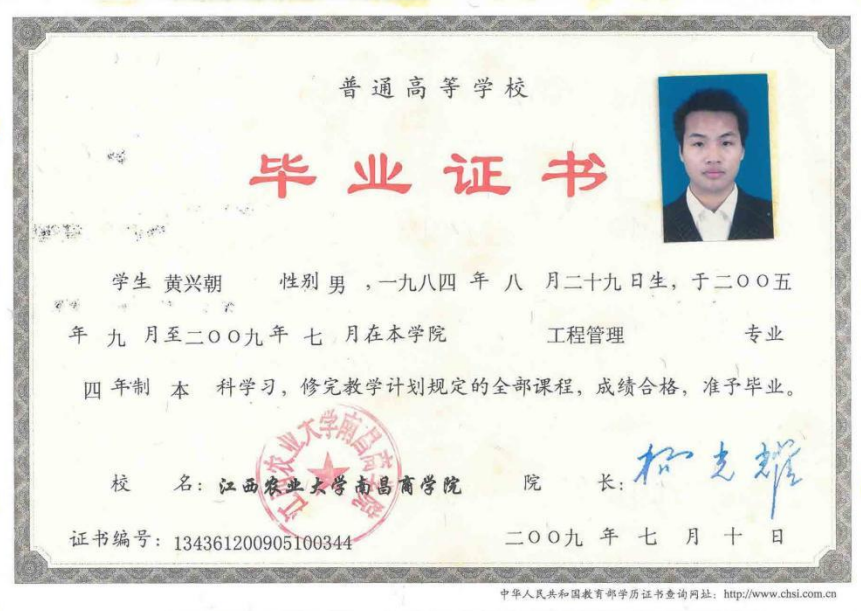 普通高等学校
毕业证书
学生 黄兴朝 性别 男 ，一九八四 年 八 月二十九日生，于二〇〇五
年 九 月至二〇〇九年 七 月在本学院 工程管理 专业
四 年制 本 科学习，修完教学计划规定的全部课程，成绩合格，准予毕业。
江西农业大学南昌商学院
校 名：江西农业大学南昌商学院 院 长：
证书编号：134361200905100344 二〇〇九 年 七 月 十 日
中华人民共和国教育部学历证书查询网址：http://www.chsi.com.cn